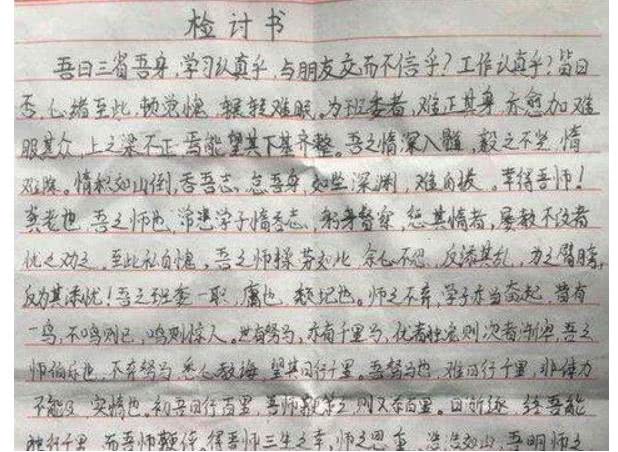 检讨书
吾日三省吾身，学习认真乎，与朋友交而不信乎？工作认真乎？皆曰
否，心绪至此，顿觉愧，辗转难眠。为班委者，难正其身，亦愈加难
服其众，上之梁不正，焉能望其下其齐整。吾之惰深入髓，毅之不坚，惰
难除。惰积如山倒，吞吾志，怠吾身，如坠深渊，难自拔。幸得吾师！
龚老也，吾之师也，常悲学子惰吞志，躬身督察，惩其惰者，屡教不改者
忧之劝之，至此私自愧，吾之师操劳如此，余心不思，反添其乱，为之臂膀，
反为其添忧！吾之班委一职，庸也，颓圮也。师之不弃，学子亦当奋起，昔有
一鸟，不鸣则已，鸣则惊人。世有驽马，亦有千里马，优者独宠则次者渐牢，吾之
师伯乐也，不弃驽马，悉心教诲，望其日行千里。吾驽马也，难日行千里，非体力
不能及，实惰也。初吾日行百里，吾师鞭策之，则又奔百里。日渐逐，终吾能
独行千里，而吾师鞭停。得吾师三生之幸，师之恩重，浩浩如山，吾明师之